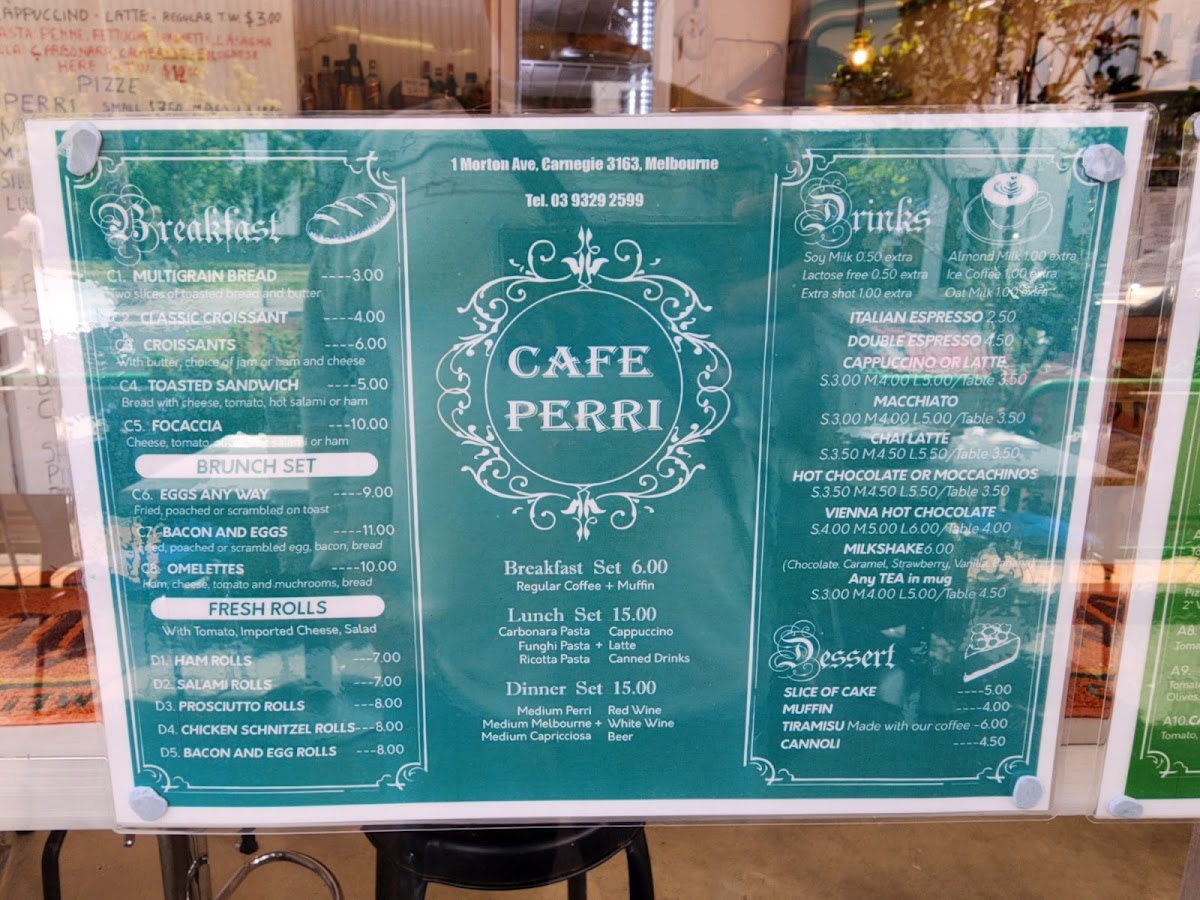 CAPPUCCINO - LATTE - REGULAR T.W. $3.00
PASTA PENNE, FETTUCINE, LASAGNA
CARBONARA, CALABRESE, BOLOGNESE
HERE
PIZZE
PERRI SMALL
1 Morton Ave, Carnegie 3163, Melbourne
Tel. 03 9329 2599
CAFE
PERRI
Breakfast
C1. MULTIGRAIN BREAD ----3.00
Two slices of toasted bread and butter
C2. CLASSIC CROISSANT ----4.00
C3. CROISSANTS ----6.00
With butter, choice of jam or ham and cheese
C4. TOASTED SANDWICH ----5.00
Bread with cheese, tomato, hot salami or ham
C5. FOCACCIA ----10.00
Cheese, tomato, salami or ham
BRUNCH SET
C6. EGGS ANY WAY ----9.00
Fried, poached or scrambled on toast
C7. BACON AND EGGS ----11.00
Fried, poached or scrambled egg, bacon, bread
C8. OMELETTES ----10.00
Ham, cheese, tomato and muchrooms, bread
FRESH ROLLS
With Tomato, Imported Cheese, Salad
D1. HAM ROLLS ---7.00
D2. SALAMI ROLLS ----7.00
D3. PROSCIUTTO ROLLS ---8.00
D4. CHICKEN SCHNITZEL ROLLS---8.00
D5. BACON AND EGG ROLLS ---8.00
Breakfast Set 6.00
Regular Coffee + Muffin
Lunch Set 15.00
Carbonara Pasta Cappuccino
Funghi Pasta + Latte
Ricotta Pasta Canned Drinks
Dinner Set 15.00
Medium Perri Red Wine
Medium Melbourne + White Wine
Medium Capricciosa Beer
Drinks
Soy Milk 0.50 extra Almond Milk 1.00 extra
Lactose free 0.50 extra Ice Coffee 1.00 extra
Extra shot 1.00 extra Oat Milk 1.00 extra
ITALIAN ESPRESSO 2.50
DOUBLE ESPRESSO 4.50
CAPPUCCINO OR LATTE
S.3.00 M.4.00 L.5.00/Table 3.50
MACCHIATO
S.3.00 M.4.00 L.5.00/Table 3.50
CHAI LATTE
S.3.50 M.4.50 L.5.50/Table 3.50
HOT CHOCOLATE OR MOCCACHINOS
S.3.50 M.4.50 L.5.50/Table 3.50
VIENNA HOT CHOCOLATE
S.4.00 M.5.00 L.6.00/Table 4.00
MILKSHAKE 6.00
(Chocolate, Caramel, Strawberry, Vanilla, Banana)
Any TEA in mug
S.3.00 M.4.00 L.5.00/Table 4.50
Dessert
SLICE OF CAKE ----5.00
MUFFIN ----4.00
TIRAMISU Made with our coffee -6.00
CANNOLI ----4.50
A8
Toma
A9.
Tomato
Olives
A10.CA
Tomato,